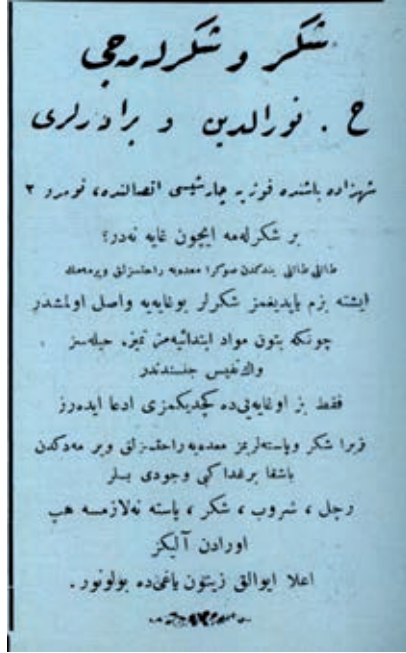 شكر و شكرلمه‌جى
ح . نورالدين و برادرلرى
شهزاده باشنده فوزيه چارشيسى اتصالنده، نومرو ٢
بر شكرلمه ايچون غايه نه‌در؟
طاتلى طاتلى يندكدن صوكرا معده‌يه راحتسزلق ويرمه‌مك
ايشته بزم ياپديغمز شكرلر بوغايه‌يه واصل اولمشدر
چونكه بتون مواد ابتدائيه‌مز تميز، حيله‌سز
واك نفيس جنسندندر
فقط بز او غايه‌يى‌ده كچديكمزى ادعا ايده‌رز
زيرا شكر وپاسته‌لريمز معده‌يه راحتسزلق ويرمه‌دكدن
باشقا برغدا كبى وجودى بسلر
رچل ، شروب ، شكر ، پاسته نه‌لازمسه هپ
اورادن آليكز
اعلا ايوالق زيتون ياغى‌ده بولونور .